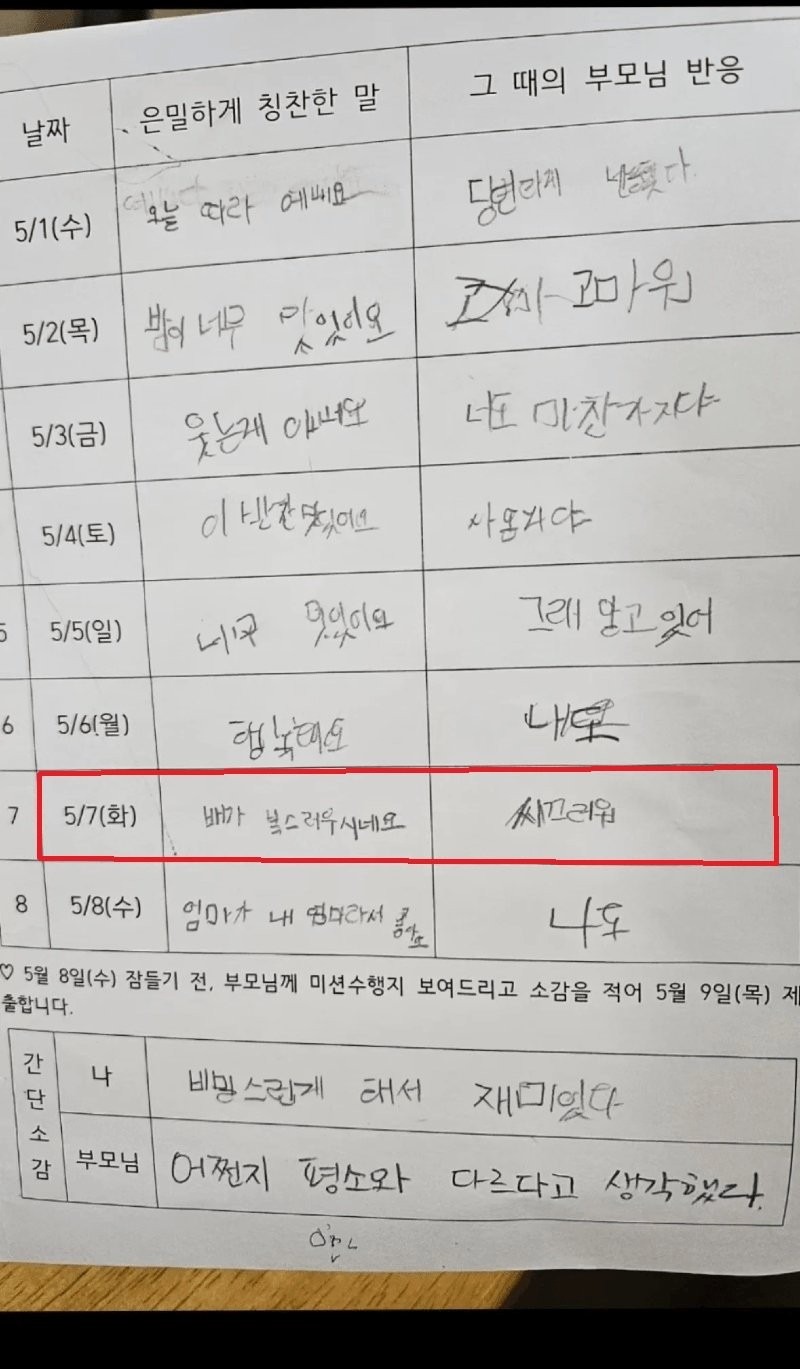 날짜 은밀하게 칭찬한 말 그 때의 부모님 반응
5/1(수) 오늘 따라 예뻐요
5/2(목) 밥이 너무 맛있어요 고마워
5/3(금) 웃는게 너도 마찬가지야
5/4(토) 이 반찬 맛있어요
5 5/5(일) 그래 알고 있어
6 5/6(월) 나도
7 5/7(화) 배가 복스러우시네요 씨끄러워
8 5/8(수) 엄마가 내 엄마라서 좋아요 나도
♡ 5월 8일(수) 잠들기 전, 부모님께 미션수행지 보여드리고 소감을 적어 5월 9일(목) 제
출합니다.
간단소감
나 비밍스런게 태서 재미있다
부모님 어쩐지 평소와 다르다고 생각했다.